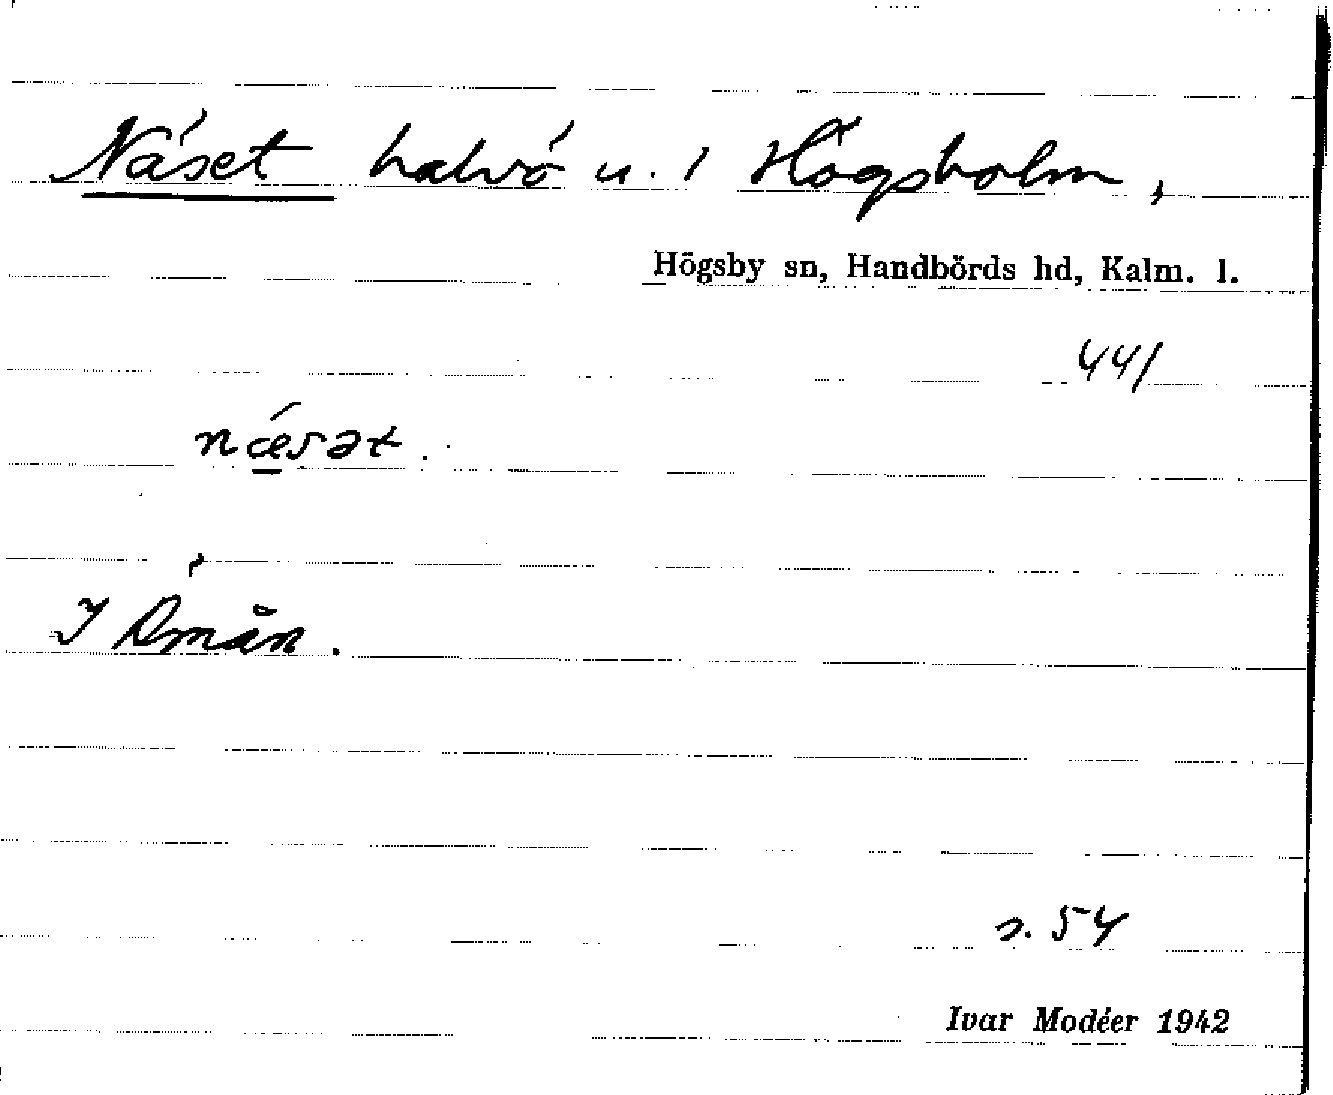 Näset halvö u. 1 Högsholm,
Högsby sn, Handbörds hd, Kalm. l.
441
nǽ̱sət.
I Åmån.
s. 54
Ivar Modéer 1942